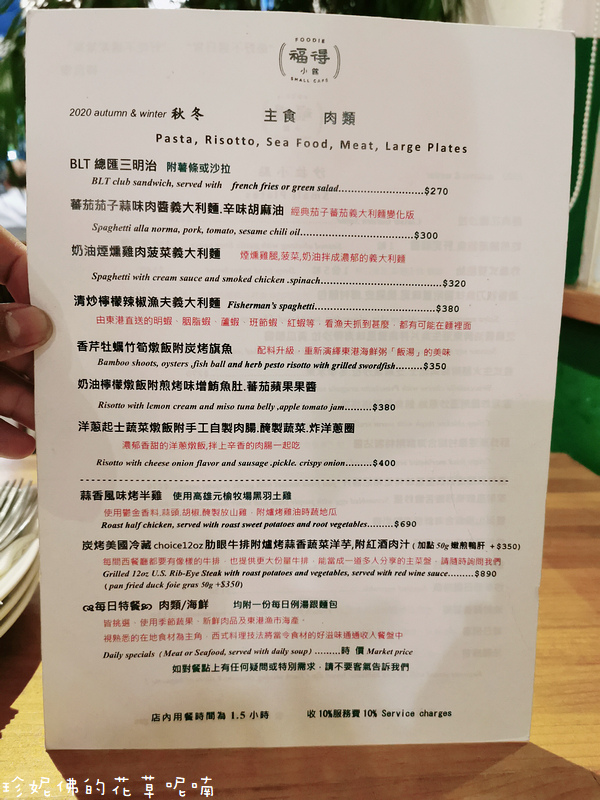 FOODIE
福得
小館
SMALL CAFE
2020 autumn & winter 秋冬 主食 肉類
Pasta, Risotto, Sea Food, Meat, Large Plates
BLT 總匯三明治 附薯條或沙拉
BLT club sandwich, served with french fries or green salad....................$270
蕃茄茄子蒜味肉醬義大利麵.辛味胡麻油 經典茄子蕃茄義大利麵變化版
Spaghetti alla norma, pork, tomato, sesame chili oil..........................$300
奶油煙燻雞肉菠菜義大利麵 煙燻雞腿,菠菜,奶油拌成濃郁的義大利麵
Spaghetti with cream sauce and smoked chicken .spinach............................$320
清炒檸檬辣椒漁夫義大利麵 Fisherman's spaghetti............................$380
由東港直送的明蝦、胭脂蝦、蘆蝦、班節蝦、紅蝦等，看漁夫抓到甚麼，都有可能在麵裡面
香芹牡蠣竹筍燉飯附炭烤旗魚 配料升級，重新演繹東港海鮮粥「飯湯」的美味
Bamboo shoots, oysters ,fish ball and herb pesto risotto with grilled swordfish.........$350
奶油檸檬燉飯附煎烤味增鮪魚肚.蕃茄蘋果果醬
Risotto with lemon cream and miso tuna belly ,apple tomato jam.........$380
洋蔥起士蔬菜燉飯附手工自製肉腸.醃製蔬菜.炸洋蔥圈
濃郁香甜的洋蔥燉飯,拌上辛香的肉腸一起吃
Risotto with cheese onion flavor and sausage .pickle. crispy onion.........$400
蒜香風味烤半雞 使用高雄元榆牧場黑羽土雞
使用鬱金香料,蒜頭,胡椒,醃製放山雞，附爐烤雞油時蔬地瓜
Roast half chicken, served with roast sweet potatoes and root vegetables.........$690
炭烤美國冷藏 choice12oz 肋眼牛排附爐烤蒜香蔬菜洋芋,附紅酒肉汁 ( 加點 50g 嫩煎鴨肝 +$350)
每間西餐廳都要有像樣的牛排，也提供更大份量牛排，能當成一道多人分享的主菜盤，請隨時詢問我們
Grilled 12oz U.S. Rib-Eye Steak with roast potatoes and vegetables, served with red wine sauce.........$890
( pan fried duck foie gras 50g +$350)
每日特餐 肉類/海鮮 均附一份每日例湯跟麵包
皆挑選，使用季節蔬果、新鮮肉品及東港漁市海產，
視熟悉的在地食材為主角，西式料理技法將當令食材的好滋味通通收入餐盤中
Daily specials ( Meat or Seafood, served with daily soup) .........時 價 Market price
如對餐點上有任何疑問或特別需求，請不要客氣告訴我們
店內用餐時間為 1.5 小時 收 10%服務費 10% Service charges
珍妮佛的花草呢喃